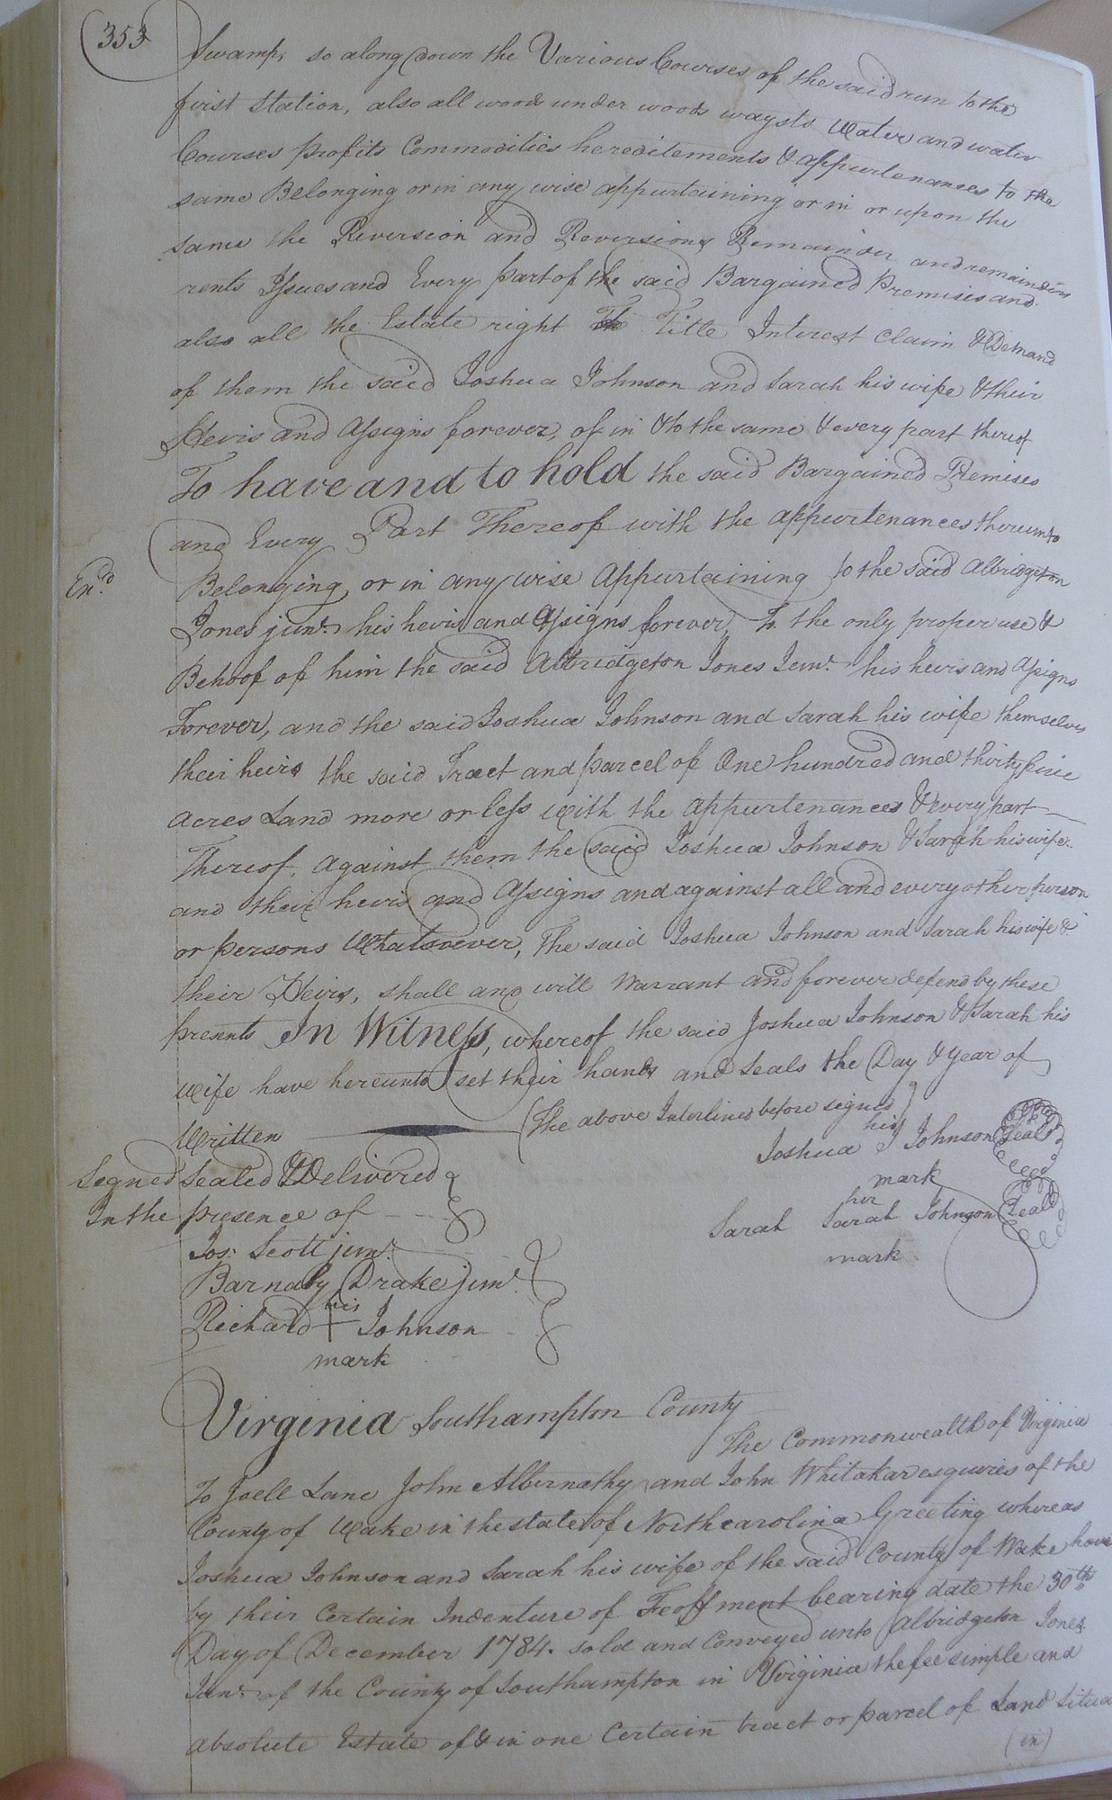 353
Swamp, so along down the Various Courses of the said run to the
first Station, also all woods under woods ways to Water and water
Courses profits Commodities hereditements & appurtenances to the
same Belonging or in any wise appurtaining or in or upon the
same the Reversion and Reversions Remainder and remainders
rents Issues and Every part of the said Bargained Premises and
also all the Estate right Title Interest Claim & Demand
of them the said Joshua Johnson and Sarah his wife & their
Heirs and Assigns forever, of in & to the same & every part thereof
To have and to hold the said Bargained Premises
and Every Part Thereof with the appurtenances thereunto
En.d
Belonging, or in any wise Appurtaining to the said Albridgeton
Jones junr. his heirs and Assigns forever, To the only proper use &
Behoof of him the said Albridgeton Jones Junr. his heirs and Assigns
Forever, and the said Joshua Johnson and Sarah his wife themselves
their heirs the said Tract and parcel of One hundred and thirty five
acres Land more or less with the appurtenances & every part
Thereof, against them the said Joshua Johnson & Sarah his wife
and their heirs and Assigns and against all and every other person
or persons Whatsoever, The said Joshua Johnson and Sarah his wife &
their Heirs, shall and will Warrant and forever defend by these
presents In Witness, whereof the said Joshua Johnson & Sarah his
wife have hereunto set their hands and Seals the Day & Year of
Written (The above Interlined before signed)
Signed Sealed & Delivered
In the presence of
his
Joshua J Johnson Seal
mark
her
Sarah Sarah Johnson Seal
mark
Jos: Scott junr.
Barnaby Drake junr.
his
Richard + Johnson
mark
Virginia Southampton County
The Commonwealth of Virginia
To Joell Lane John Albernathy and John Whitakar esquires of the
County of Wake in the state of North carolina Greeting whereas
Joshua Johnson and Sarah his wife of the said County of Wake have
by their Certain Indenture of Feoffment bearing date the 30th
Day of December 1784. sold and Conveyed unto Albridgeton Jones
Junr. of the County of Southampton in Virginia the fee simple and
absolute Estate of & in one Certain tract or parcel of Land Situa
(in)